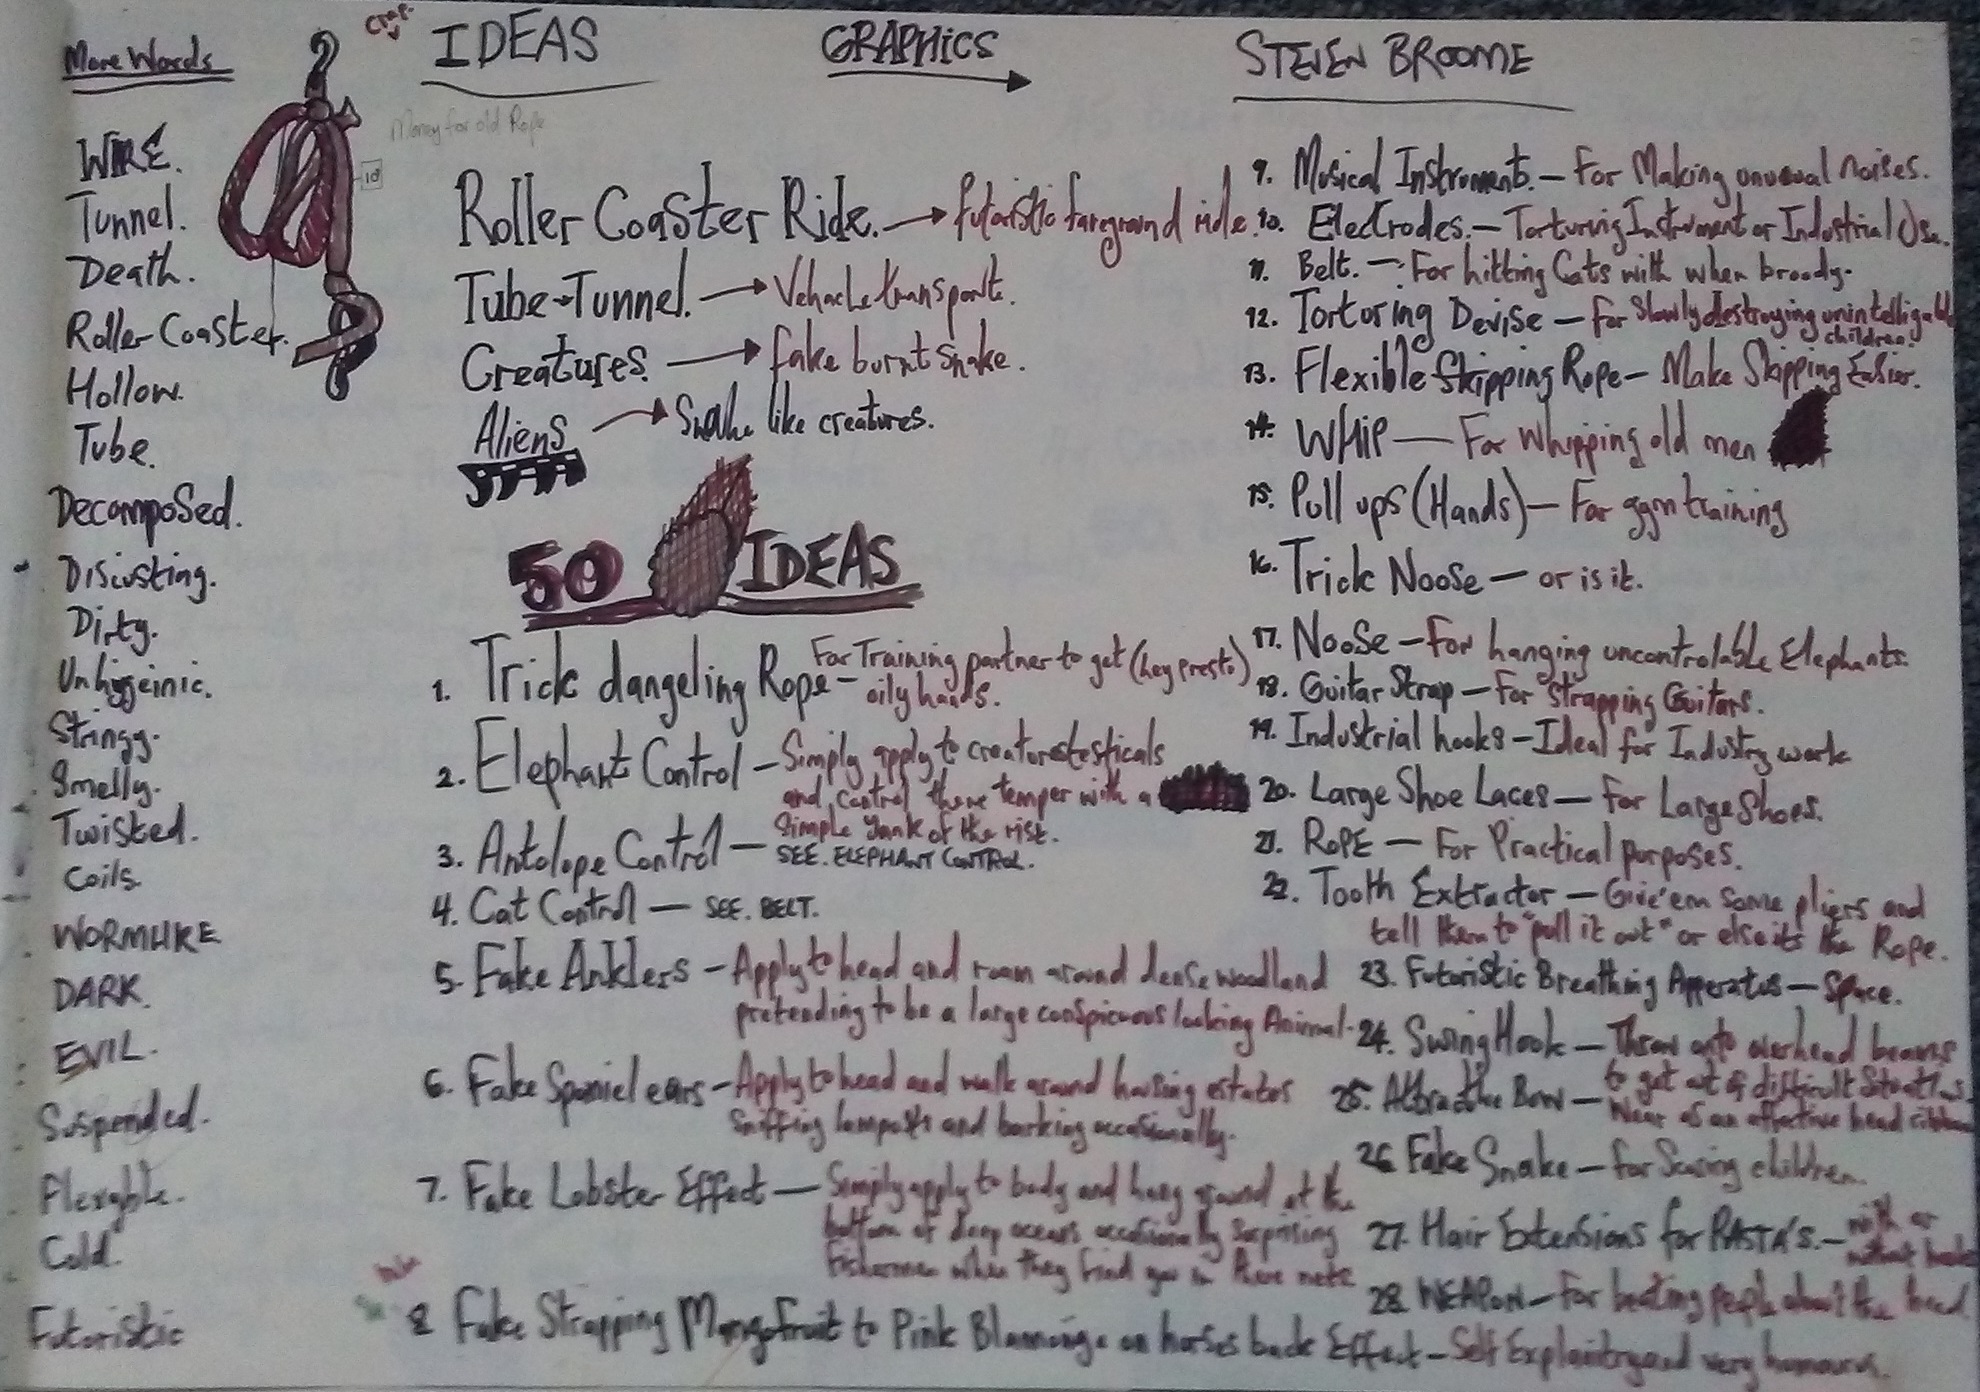 More Words
WIRE.
Tunnel.
Death.
Roller Coaster.
Hollow.
Tube.
Decomposed.
Discusting.
Dirty.
Unhygeinic.
Stringy.
Smelly.
Twisted.
Coils.
WORMLIKE
DARK.
EVIL.
Suspended.
Flexable.
Cold.
Futuristic
Crap.
IDEAS
GRAPHICS
STEVEN BROOME
Money for old Rope
Roller Coaster Ride. → futuristic fareground ride.
Tube-Tunnel. → Vehacle transport.
Creatures. → fake burnt snake.
Aliens → Snake like creatures.
50 IDEAS
1. Trick dangeling Rope - For Training partner to get (hey presto)
oily hands.
2. Elephant Control - Simply apply to creatores testicals
and control there temper with a
Simple yank of the rist.
3. Antolope Control - SEE. ELEPHANT CONTROL.
4. Cat Control - SEE. BELT.
5. Fake Anklers - Apply to head and roam around dense woodland
pretending to be a large conspicuous looking Animal.
6. Fake Spaniel ears - Apply to head and walk around housing estates
Sniffing lamposts and barking occasionally.
7. Fake Lobster Effect - Simply apply to body and hang around at the
bottom of deep oceans occasionally surprising
Fishermen when they find you in there nets
8 Fake Strapping Mango fruit to Pink Blamonge on horses back Effect - Self Explaintry and very humourus.
9. Musical Instrument. - For Making unusual noises.
10. Electrodes. - Torturing Instrument or Industrial Use.
11. Belt. - For hitting Cats with when broody.
12. Torturing Devise - For Slowly destroying unintelligable
children.
13. Flexible Skipping Rope - Make Skipping Easier.
14. WHIP - For Whipping old men
15. Pull ups (Hands) - For gym training
16. Trick Noose - or is it.
17. Noose - For hanging uncontrolable Elephants.
18. Guitar Strap - For Strapping Guitars.
19. Industrial hooks - Ideal for Industry work
20. Large Shoe Laces - For Large Shoes.
21. ROPE - For Practical purposes.
22. Tooth Extractor - Give'em some pliers and
tell them to "pull it out" or else its the Rope.
23. Futuristic Breathing Apperatus - Space.
24. Swing Hook - Throw onto overhead beams
to get out of difficult Situations
25. Attractive Bow - Wear as an affective head ribbon
26 Fake Snake - for Scaring children.
27. Hair Extensions for RASTA'S. - with or
without beads
28. WEAPON - For beating people about the head